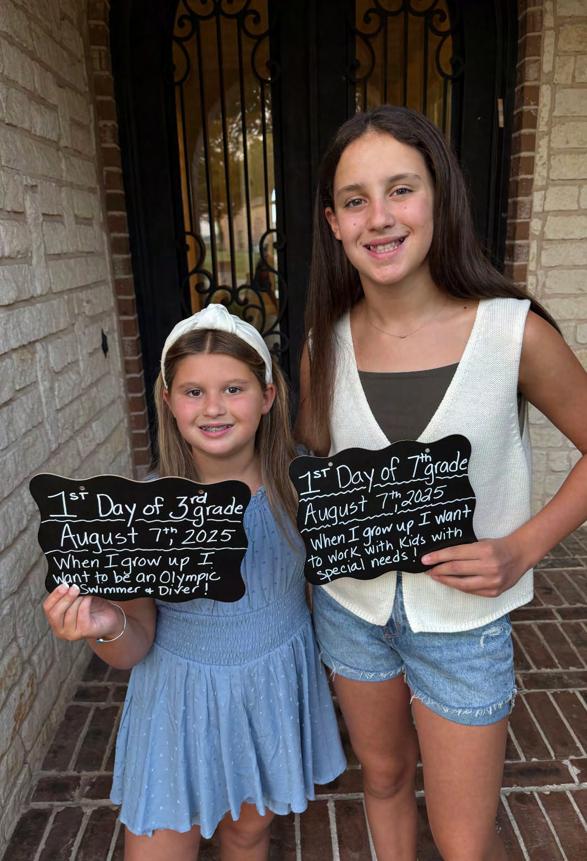 1ST Day of 3rd grade
August 7th, 2025
When I grow up I
want to be an Olympic
Swimmer & Diver!
1ST Day of 7th grade
August 7th, 2025
When I grow up I want
to work with Kids with
special needs!